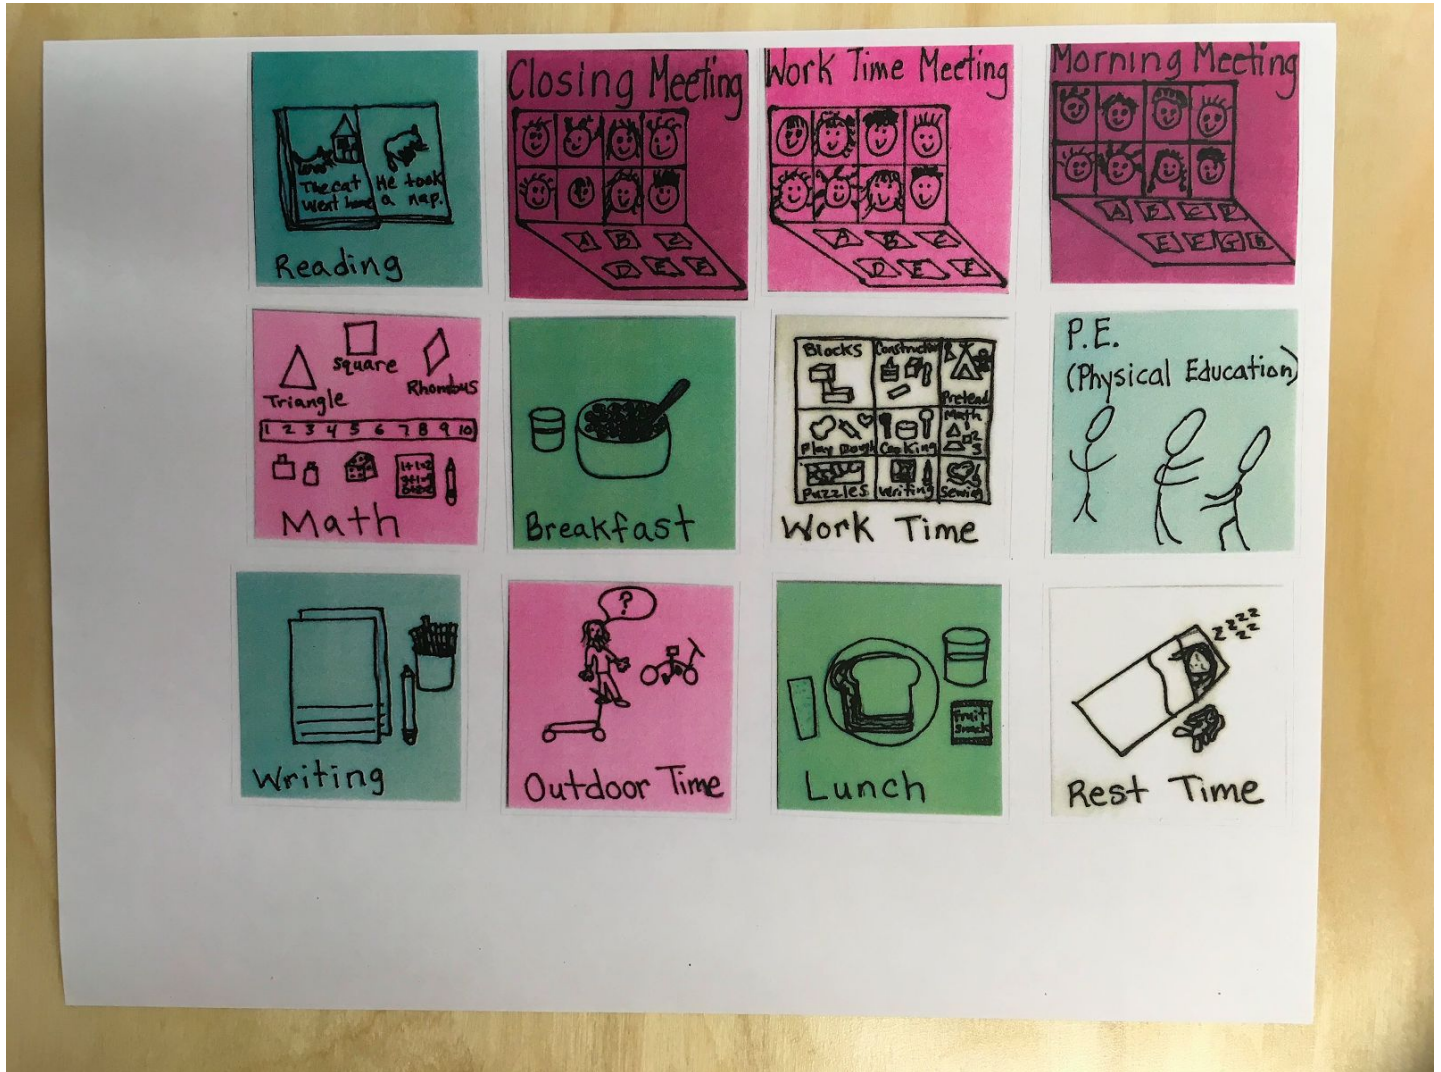 The cat
went home
He took
a nap.
Reading
Closing Meeting
A B C
D E F
Work Time Meeting
A B C
D E F
Morning Meeting
A B C D
E F G H
Square
Triangle
Rhombus
1 2 3 4 5 6 7 8 9 10
1+1=2
Math
Breakfast
Blocks
Construction
Pretend
Play Dough
Cooking
Math
Puzzles
Writing
Sewing
Work Time
P.E.
(Physical Education)
Writing
?
Outdoor Time
Fruit
Snack
Lunch
zzzz
zz
Rest Time